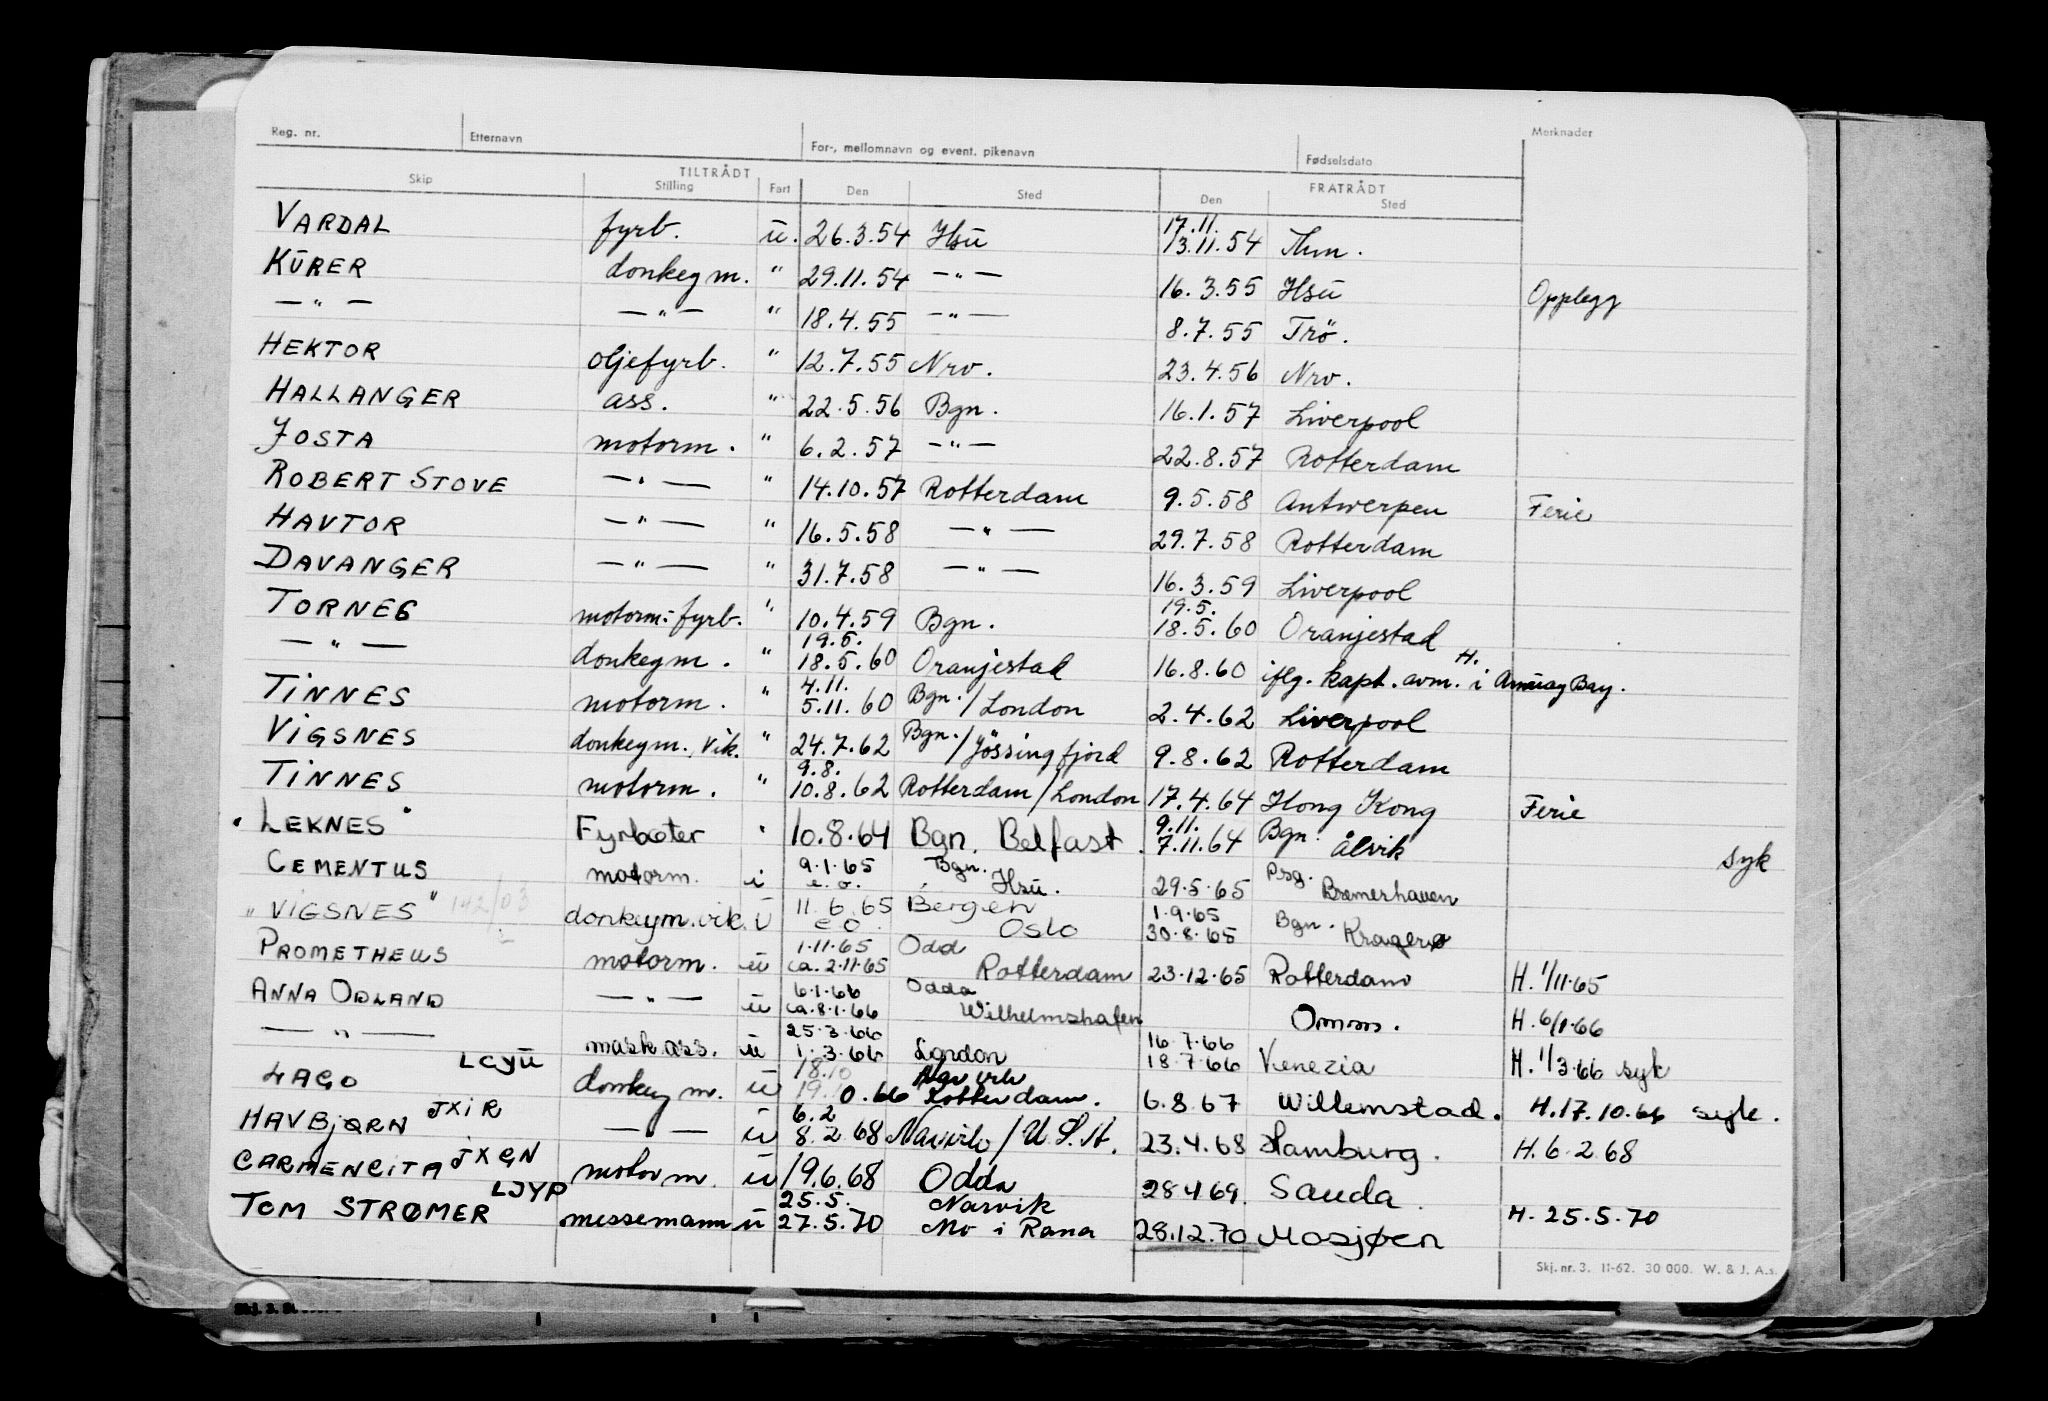 Reg. nr. Etternavn For-, mellomnavn og event. pikenavn Fødselsdato Merknader
TILTRÅDT FRATRÅDT
Skip Stilling Fart Den Sted Den Sted
17.11.
VARDAL fyrb. ü. 26.3.54 Hsü 13.11.54 Thm.
KÜRER donkeym. " 29.11.54 —"— 16.3.55 Hsü Opplegg
—"— —"— " 18.4.55 —"— 8.7.55 Trö.
HEKTOR oljefyrb. " 12.7.55 Nrv. 23.4.56 Nrv.
HALLANGER ass. " 22.5.56 Bgn. 16.1.57 Liverpool
JOSTA motorm. " 6.2.57 —"— 22.8.57 Rotterdam
ROBERT STOVE —"— " 14.10.57 Rotterdam 9.5.58 Antwerpen Ferie
HAVTOR —"— " 16.5.58 —"— 29.7.58 Rotterdam
DAVANGER —"— " 31.7.58 —"— 16.3.59 Liverpool
19.5.
TORNES motorm:fyrb. " 10.4.59 Bgn. 18.5.60 Oranjestad
19.5.
—"— donkeym. " 18.5.60 Oranjestad 16.8.60 iflg. kapt. avm. H. i Amuay Bay.
4.11. Bgn.
TINNES motorm. " 5.11.60 /London 2.4.62 Liverpool
VIGSNES donkeym. vik. " 24.7.62 Bgn./Jössingfjord 9.8.62 Rotterdam
9.8.
TINNES motorm. " 10.8.62 Rotterdam/London 17.4.64 Hong Kong Ferie
9.11. Bgn.
" LEKNES " Fyrbøter " 10.8.64 Bgn. Belfast. 7.11.64 Ålvik syk
9.1.65 Bgn. Psg.
CEMENTUS motorm. i e.o. Hsü. 29.5.65 Bremerhaven
11.6.65 Bergen 1.9.65 Bgn.
"VIGSNES" 142/03 donkeym.vik. ü e o Oslo 30.8.65 Kragerø
1.11.65 Odd
PROMETHEUS motorm. ü ca. 2.11.65 Rotterdam 23.12.65 Rotterdam H. 1/11.65
6.1.66 Odda
ANNA ODLAND —"— ü ca. 8.1.66 Wilhelmshafen Omm. H. 6/1.66
25.3.66 16.7.66
—"— mask.ass. ü 1.3.66 London 18.7.66 Venezia H. 1/3.66 syk
18.10 Narvik
LAGO LCYÜ donkeym. ü 19.10.66 Rotterdam. 6.8.67 Willemstad. H.17.10.66 syk.
6.2
HAVBJØRN JXIR —"— ü 8.2.68 Narvik/U.S.A. 23.4.68 Hamburg. H. 6.2.68
CARMENCITA JXGN motorm. ü 19.6.68 Odda 28.4.69. Sauda
25.5. Narvik
TOM STRØMER LJYP messemann ü 27.5.70 Mo i Rana 28.12.70 Mosjøen H. 25.5.70
Skj. nr. 3. 11-62. 30 000. W. & J. A.s.